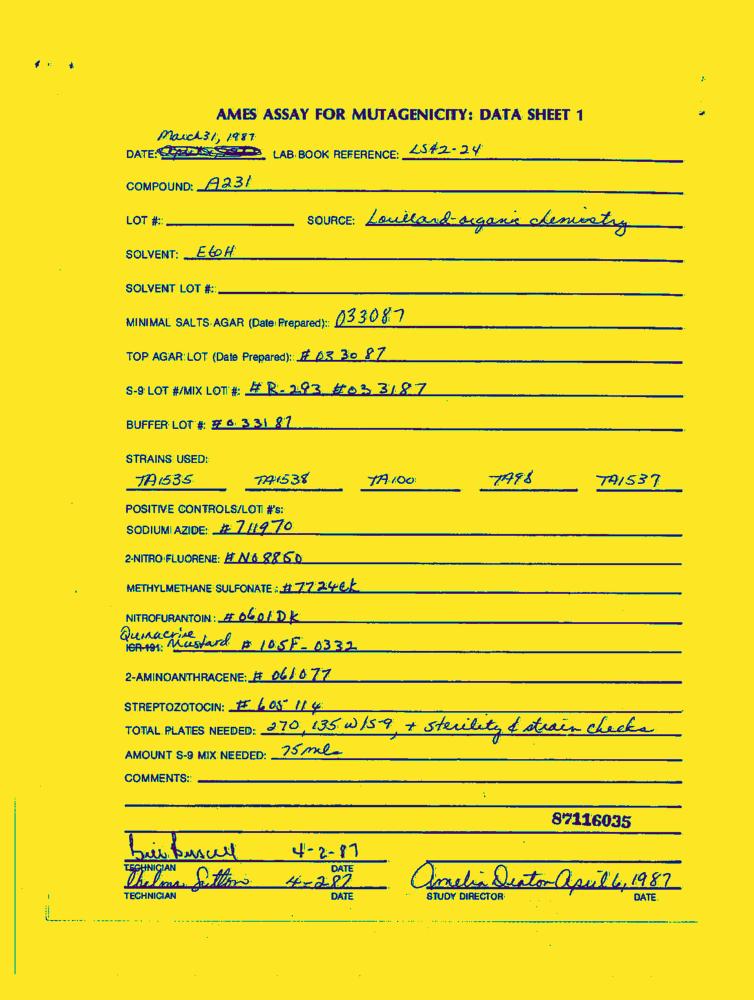 AMES ASSAY FOR MUTAGENICITY: DATA SHEET 1
March 31, 1987
DATE: LAB BOOK REFERENCE: LS#2-24
COMPOUND: A231
LOT #: SOURCE: Lorillard-organic chemistry
SOLVENT: EtOH
SOLVENT LOT #:
MINIMAL SALTS AGAR (Date Prepared): 033087
TOP AGAR LOT (Date Prepared): # 033087
S-9 LOT #/MIX LOT #: # R-293 #033187
BUFFER LOT #: # 033187
STRAINS USED:
TA1535 TA1538 TA100 TA98 TA1537
POSITIVE CONTROLS/LOT #'s:
SODIUM AZIDE: # 711970
2-NITRO FLUORENE: # N08850
METHYLMETHANE SULFONATE: # 7724
NITROFURANTOIN: # 0601DK
Quinacrine
ICR-191: Mustard # 105F-0332
2-AMINOANTHRACENE: # 061077
STREPTOZOTOCIN: # 605114
TOTAL PLATES NEEDED: 270, 135 w/S-9, + sterility & strain checks
AMOUNT S-9 MIX NEEDED: 75 mls
COMMENTS:
87116035
4-2-87
TECHNICIAN DATE
Thelma Sutton 4-2-87 Amelia Deaton April 6, 1987
TECHNICIAN DATE STUDY DIRECTOR DATE